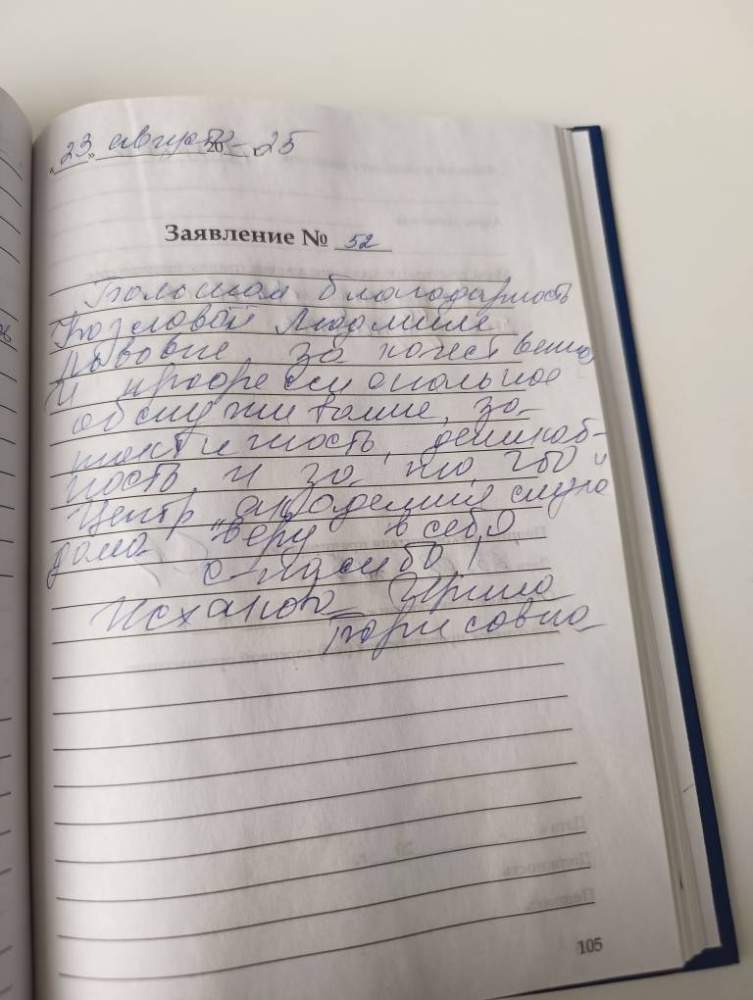 „23" август 20 25
Заявление № 52
Большая благодарность
Козловой Людмиле
Львовне, за качественное
и професси ональное
обслуживание, за
тактичность, деликат-
ность, и за то, что
Центр академия слуха
дома веру в себя
спасибо!
Исханова Ирина
Борисовна
105